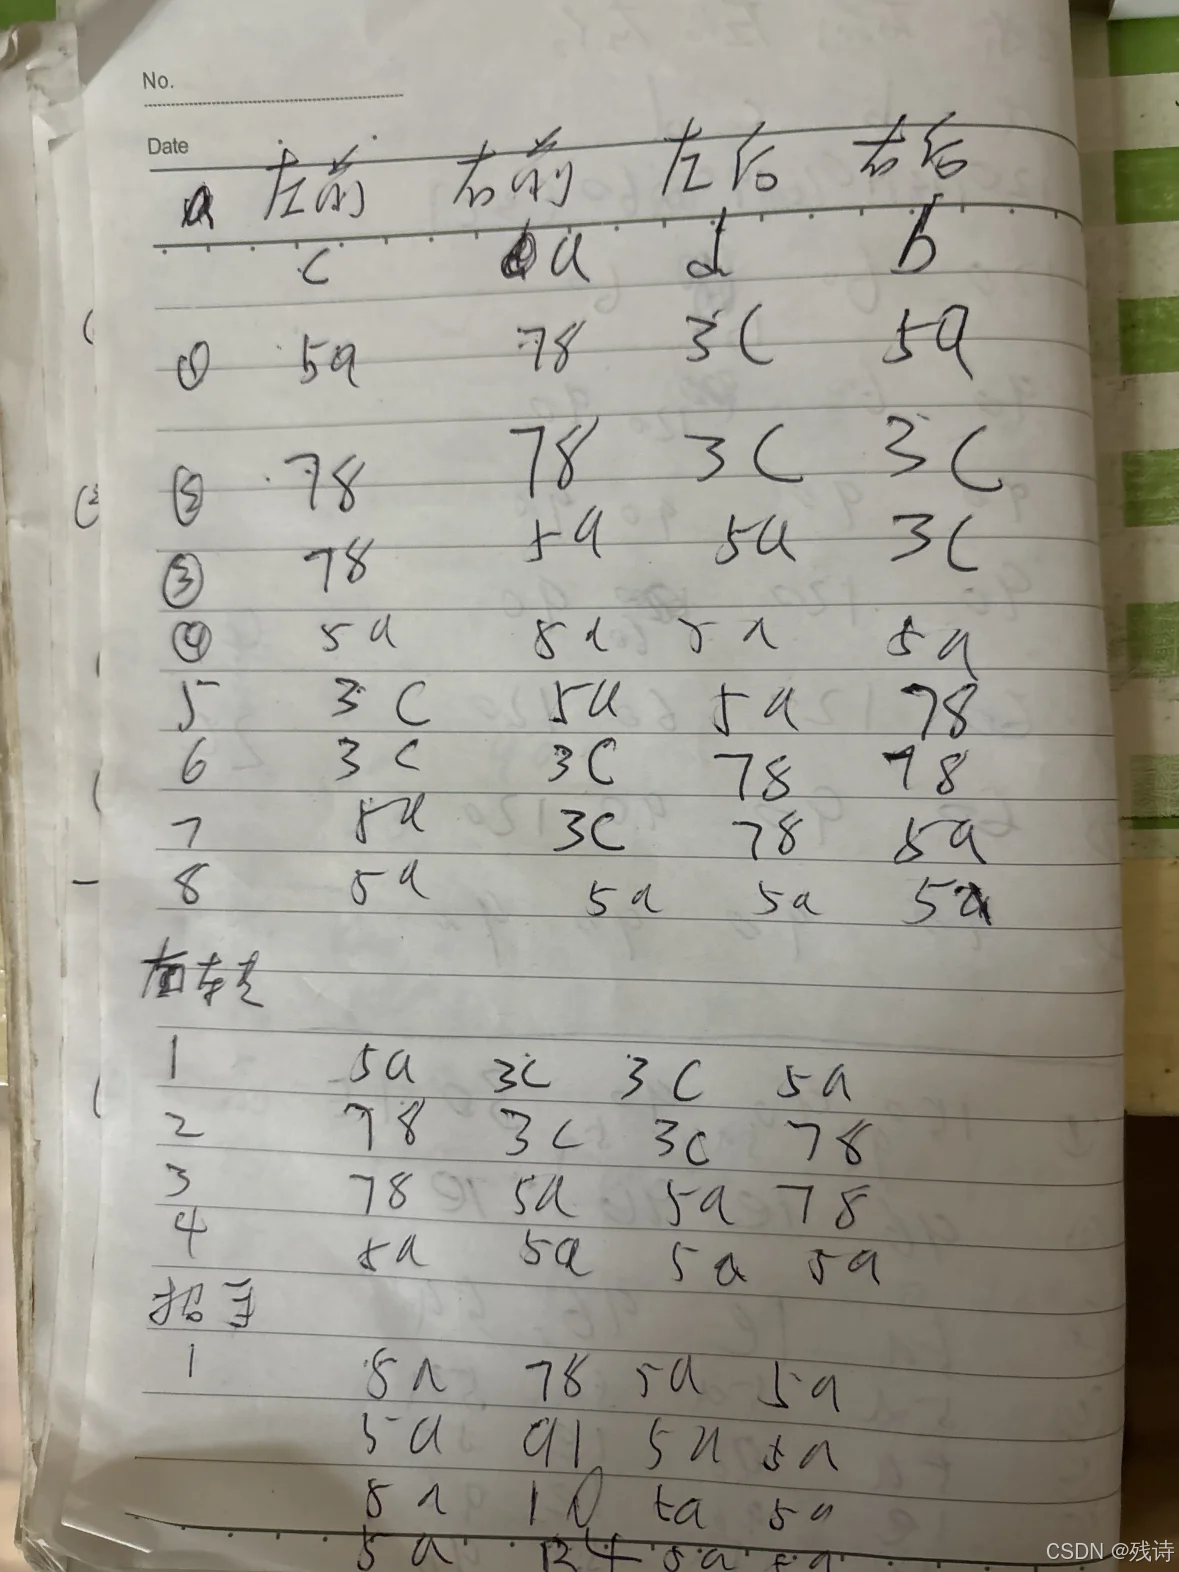 No.
Date
a 左前 右前 左后 右后
c a d b
① 5a 78 3C 5a
② 78 78 3C 3C
③ 78 5a 5a 3C
④ 5a 5a 5a 5a
5 3C 5a 5a 78
6 3C 3C 78 78
7 5a 3C 78 5a
8 5a 5a 5a 5a
1 5a 3C 3C 5a
2 78 3C 3C 78
3 78 5a 5a 78
4 5a 5a 5a 5a
招手
1 5a 78 5a 5a
5a 91 5a 5a
5a 10 5a 5a
5a 5a 5a
CSDN @残诗